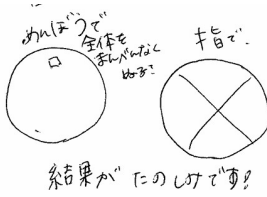 めんぼうで
全体を
まんべんなく
ぬる?
指で、
結果が たのしみです!